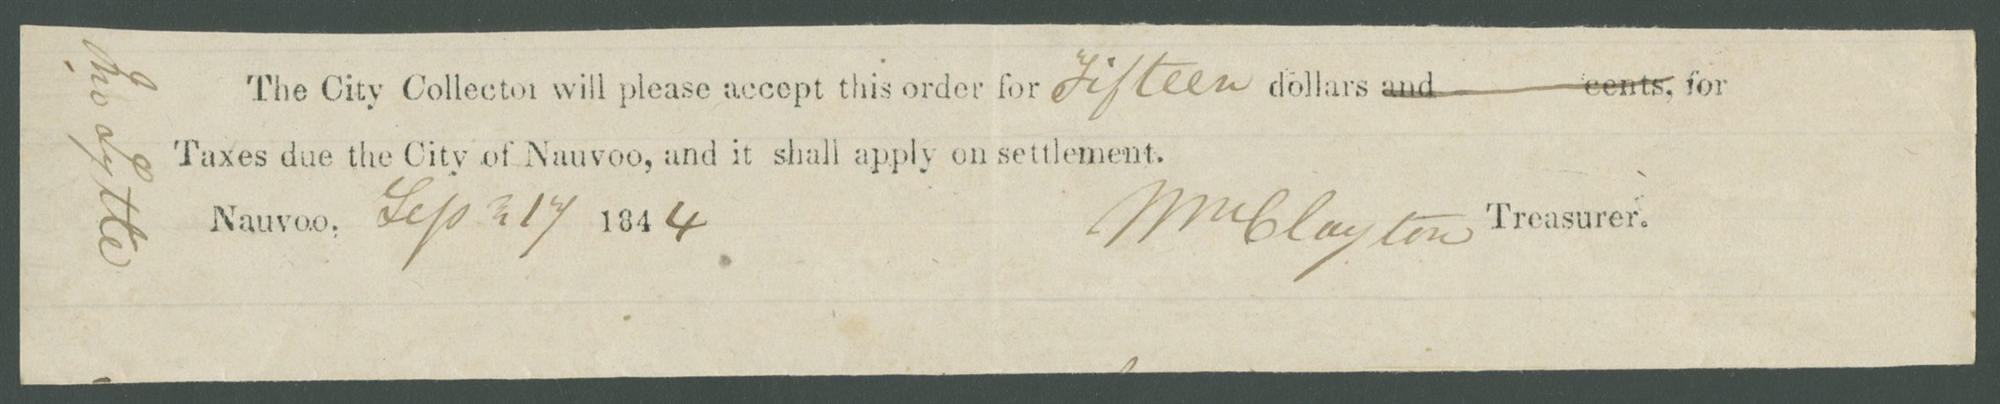 The City Collector will please accept this order for Fifteen dollars and cents, for
Taxes due the City of Nauvoo, and it shall apply on settlement.
Nauvoo, Sep 17 1844 Wm Clayton Treasurer.
Lytle